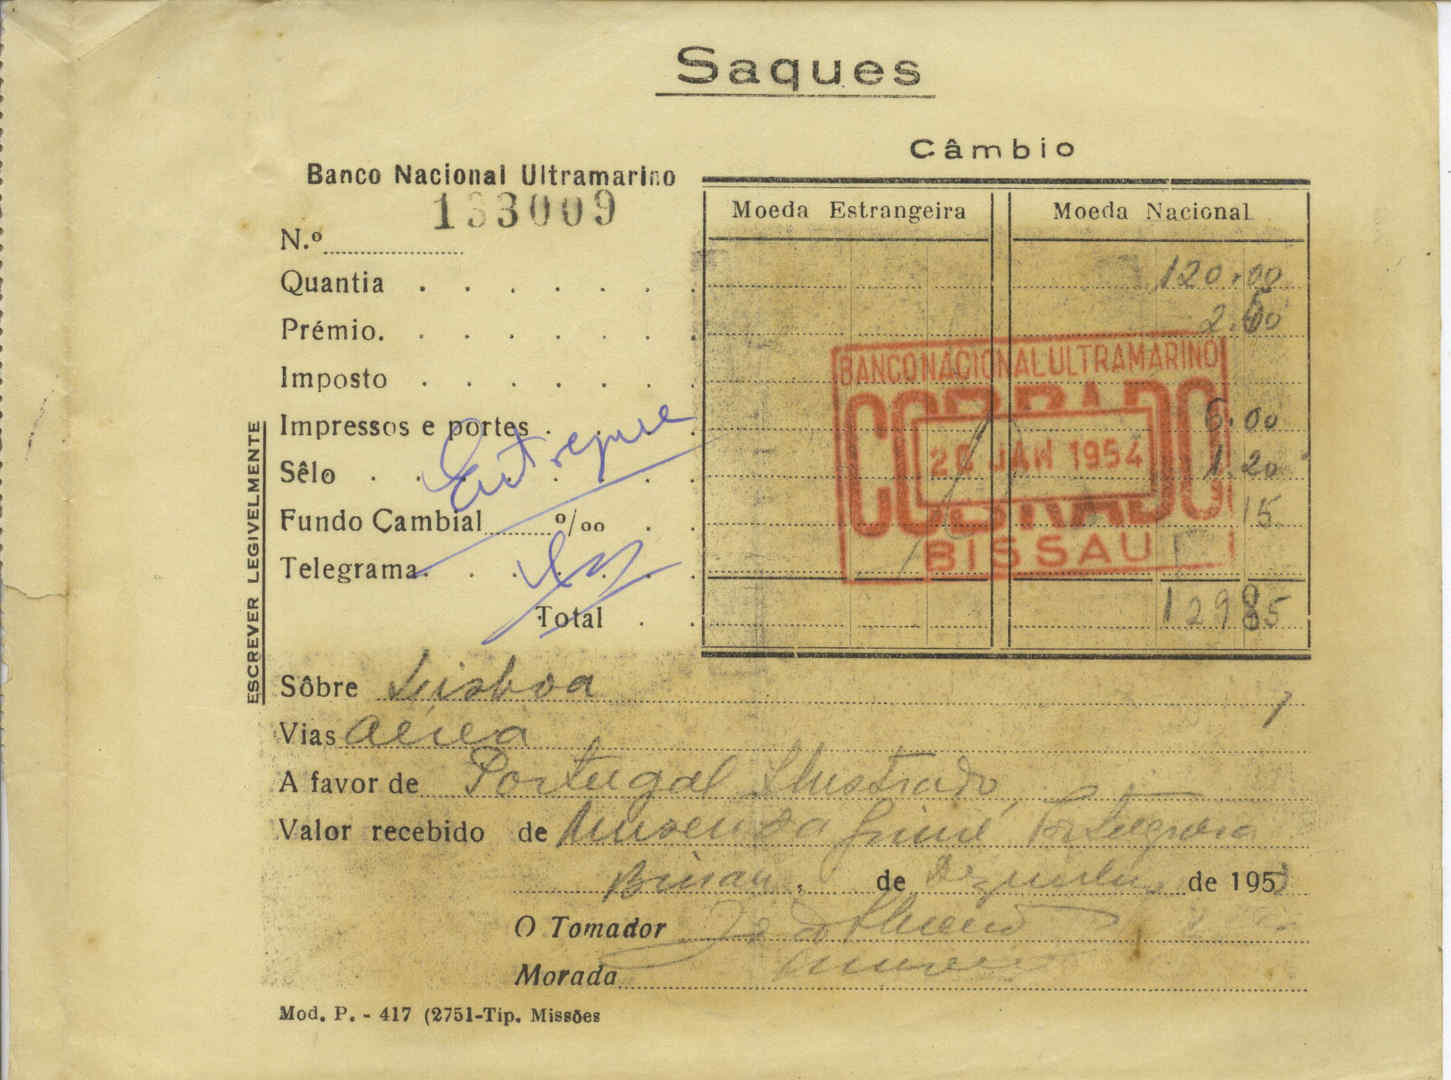 Saques
Câmbio
Banco Nacional Ultramarino
133009
Moeda Estrangeira
Moeda Nacional
N.º
Quantia . . . . . . . 120.00
Prémio. . . . . . . .
Imposto . . . . . . .
Impressos e portes . . . . 6.00
Sêlo . . . . . . . . 1 20
Fundo Cambial ‰ . . 15
Telegrama. . . . . . .
Total . . 129 85
BANCO NACIONAL ULTRAMARINO
COBRADO
20 JAN 1954
BISSAU
Entregue
ESCREVER LEGIVELMENTE
Sôbre Lisboa
Vias aérea
A favor de Portugal Ilustrado,
Valor recebido de Museu da Guiné Portuguesa
Bissau, de Dezembro de 195
O Tomador
Morada
Mod. P. - 417 (2751-Tip. Missões